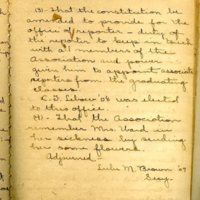 (3) That the constitution be
amended to provide for the
office of reporter - duty of
the reporter to keep in touch
with all members of the
Association and power
given him to appoint associate
reporters from the graduating
classes.
C. D. Lebow '06 was elected
to this office.
(4) - That the Association
remember Mrs. Ward in
her sickness by sending
her some flowers.
Adjourned
Lulu M. Brown '07
Secy.